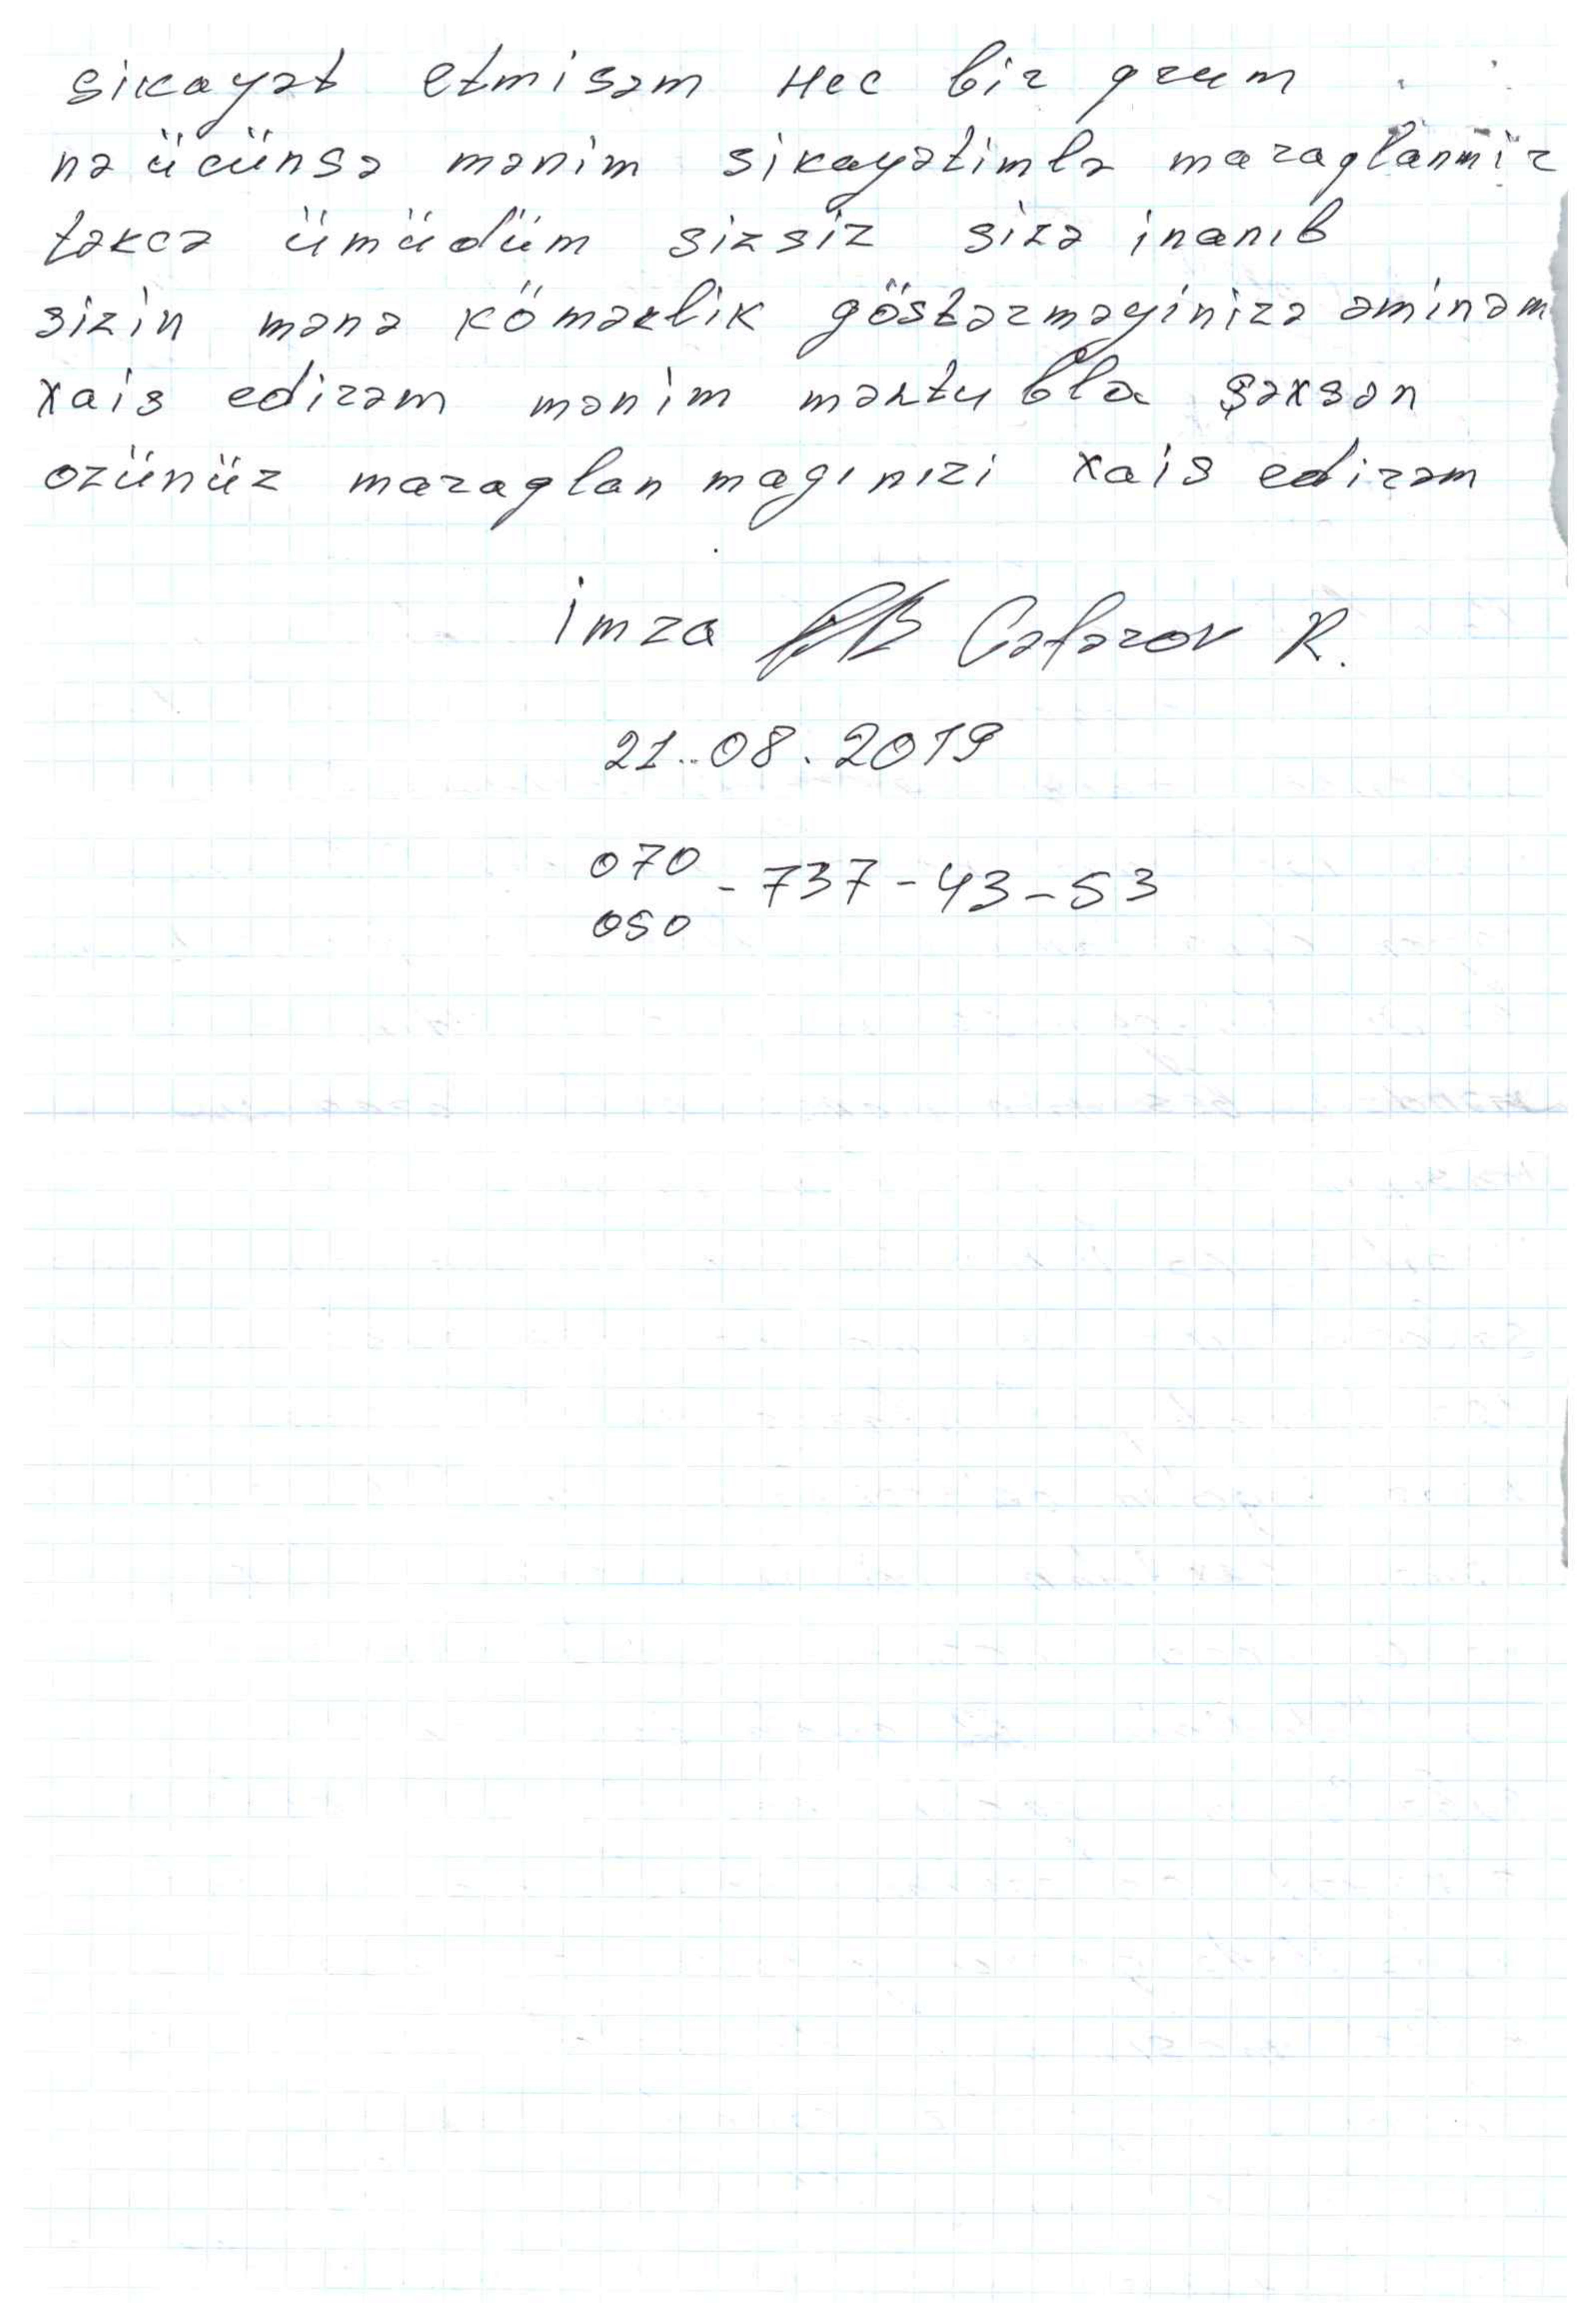 sikayət etmisəm Hec bir qrum
nə ücünsə mənim sikayətimlə maraqlanmir
təkcə ümüdüm sizsiz sizə inanıb
sizin mənə köməklik göstərməyinizə əminəm
xais edirəm mənim məktubla şəxsən
ozünüz maraqlan magınızi xais edirəm
imza Cəfərov R.
21..08.2019
070
- 737-43-53
050